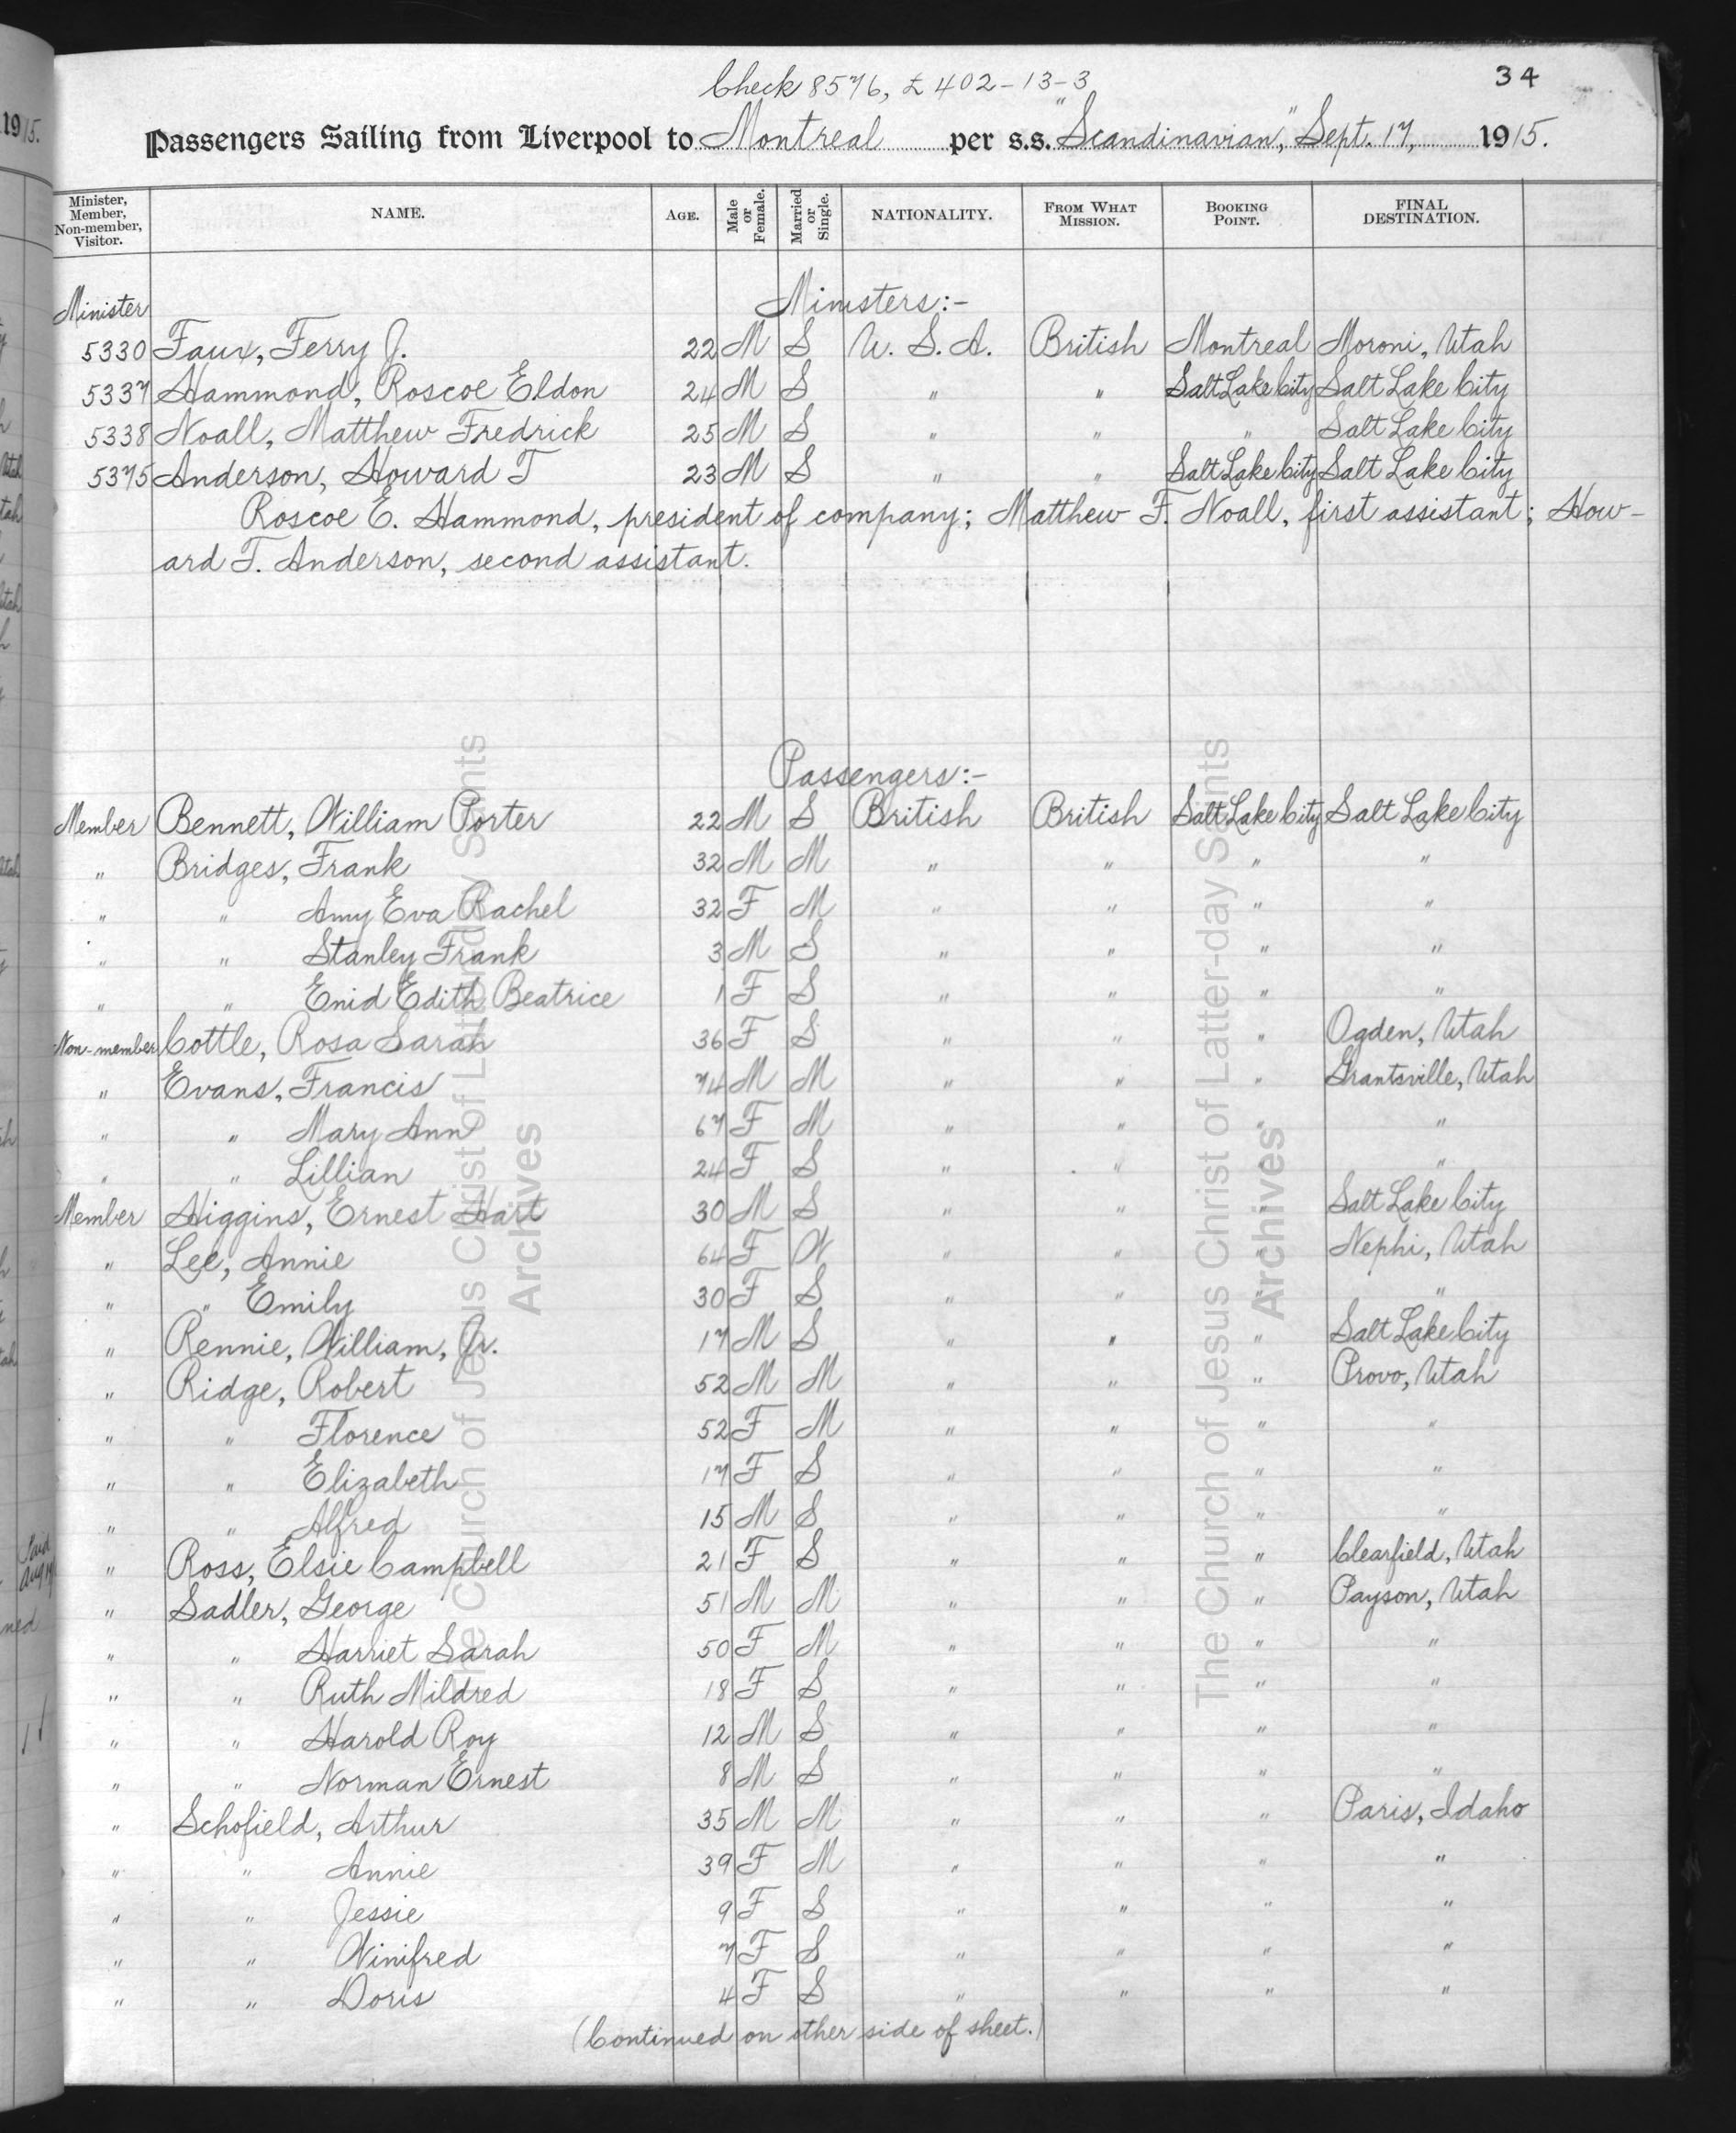 Check 8576, £402-13-3
34
Passengers Sailing from Liverpool to Montreal per s.s. "Scandinavian," Sept. 17, 1915.
Minister, Member, Non-member, Visitor. NAME. AGE. Male or Female. Married or Single. NATIONALITY. FROM WHAT MISSION. BOOKING POINT. FINAL DESTINATION.
Ministers:-
Minister
5330 Faux, Ferry J. 22 M S U. S. A. British Montreal Moroni, Utah
5337 Hammond, Roscoe Eldon 24 M S " " Salt Lake City Salt Lake City
5338 Noall, Matthew Fredrick 25 M S " " " Salt Lake City
5375 Anderson, Howard T 23 M S " " Salt Lake City Salt Lake City
Roscoe E. Hammond, president of company; Matthew F. Noall, first assistant; How-
ard T. Anderson, second assistant.
Passengers:-
Member Bennett, William Porter 22 M S British British Salt Lake City Salt Lake City
" Bridges, Frank 32 M M " " " "
" " Amy Eva Rachel 32 F M " " " "
" " Stanley Frank 3 M S " " " "
" " Enid Edith Beatrice 1 F S " " " "
Non-member Cottle, Rosa Sarah 36 F S " " " Ogden, Utah
" Evans, Francis 74 M M " " " Grantsville, Utah
" " Mary Ann 67 F M " " " "
" " Lillian 24 F S " " " "
Member Higgins, Ernest Hart 30 M S " " " Salt Lake City
" Lee, Annie 64 F W " " " Nephi, Utah
" " Emily 30 F S " " " "
" Rennie, William, Jr. 17 M S " " " Salt Lake City
" Ridge, Robert 52 M M " " " Provo, Utah
" " Florence 52 F M " " " "
" " Elizabeth 17 F S " " " "
" " Alfred 15 M S " " " "
" Ross, Elsie Campbell 21 F S " " " Clearfield, Utah
" Sadler, George 51 M M " " " Payson, Utah
" " Harriet Sarah 50 F M " " " "
" " Ruth Mildred 18 F S " " " "
" " Harold Roy 12 M S " " " "
" " Norman Ernest 8 M S " " " "
" Schofield, Arthur 35 M M " " " Paris, Idaho
" " Annie 39 F M " " " "
" " Jessie 9 F S " " " "
" " Winifred 7 F S " " " "
" " Doris 4 F S " " " "
(Continued on other side of sheet.)
The Church of Jesus Christ of Latter-day Saints
Archives
The Church of Jesus Christ of Latter-day Saints
Archives
1915.